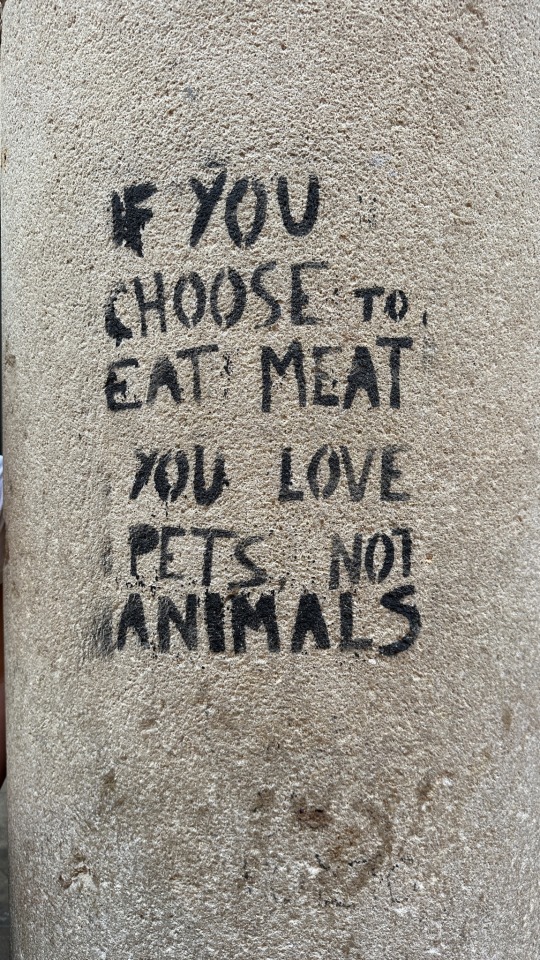 IF YOU
CHOOSE TO
EAT MEAT
YOU LOVE
PETS NOT
ANIMALS